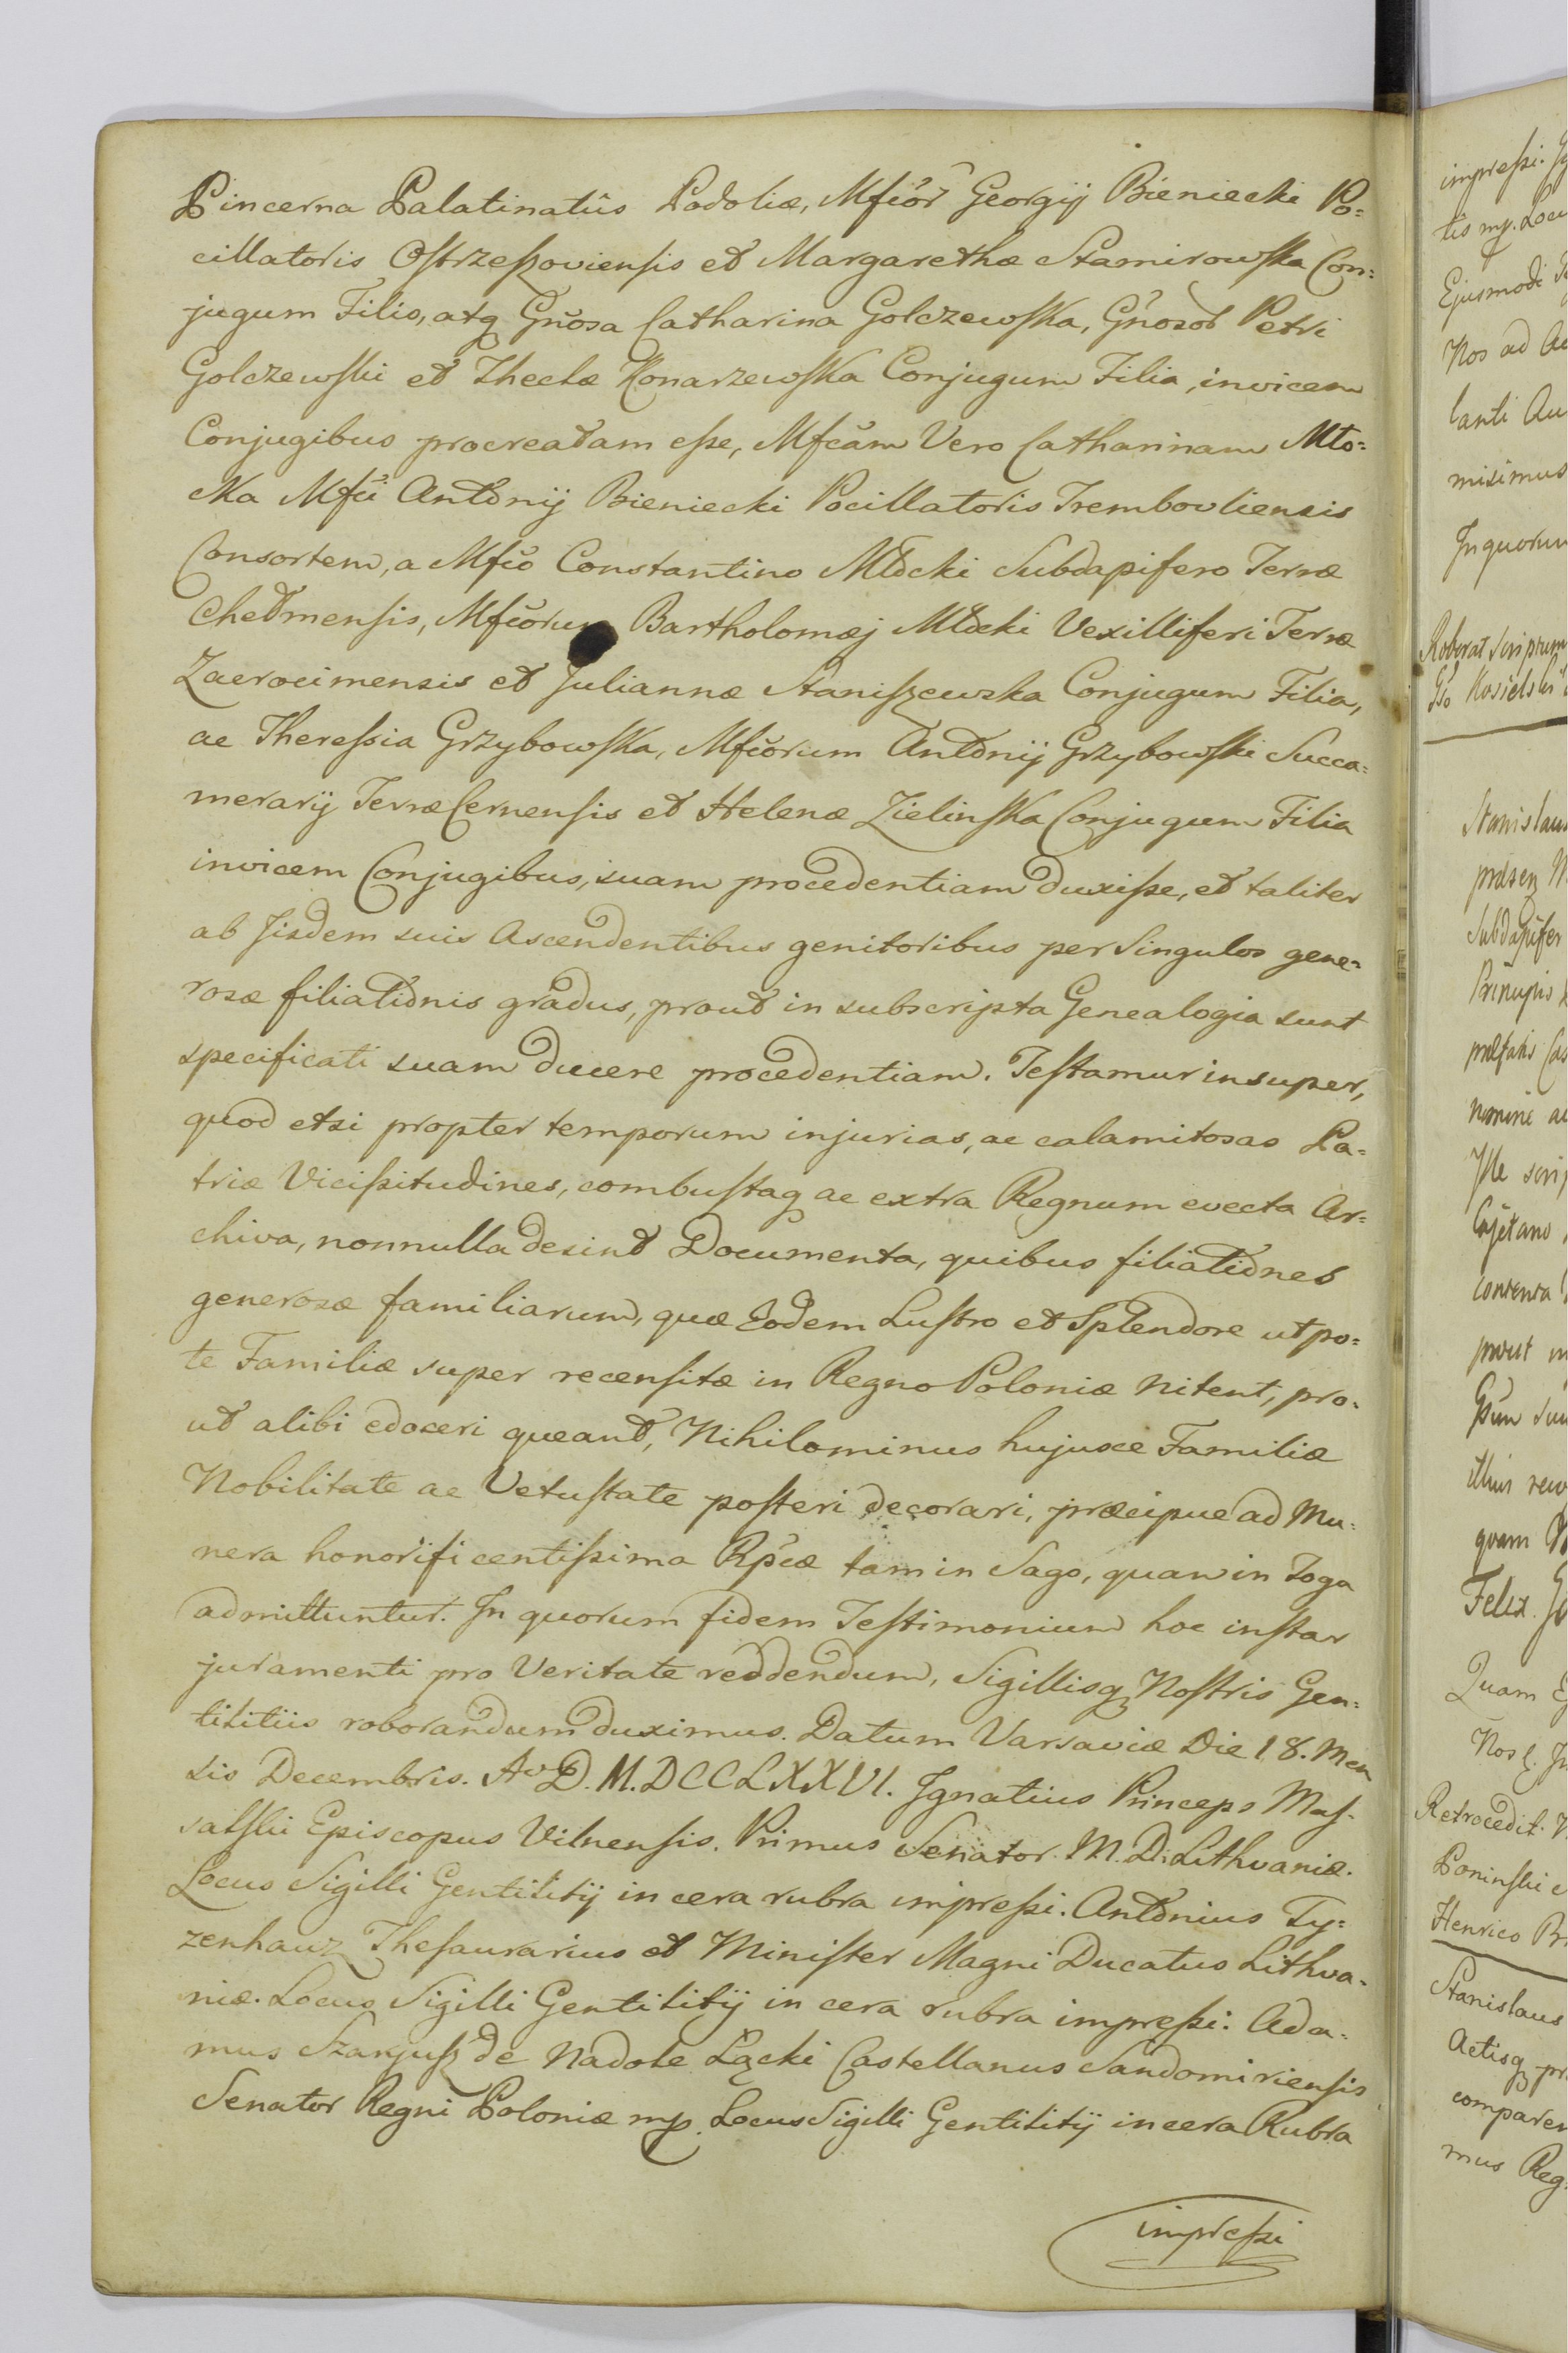 Pincerna Palatinatûs Podoliæ, Mfcõr Georgij Bieniecki Po=
cillatoris Ostrzeszoviensis et Margarethæ Stamirowska Con=
jugum Filio, atq Gñosa Catharina Golczewska, Gñosor Petri
Golczewski et Theclæ Konarzewska Conjugum Filia, invicem
Conjugibus procreatam esse, Mfcãm Vero Catharinam Mło=
cka Mfci Antonij Bieniecki Pocillatoris Trembovliensis
Consortem, a Mfco Constantino Młocki Subdapifero Terræ
Chełmensis, Mfcõrum Bartholomæj Młocki Vexilliferi Terræ
Zacrocimensis et Juliannæ Staniszewska Conjugum Filio,
ac Theressia Grzybowska, Mfcõrum Antonij Grzybowski Succa=
merarij Terræ Cernensis et Helenæ Zielinska Conjugum Filia
invicem Conjugibus, suam procedentiam duxisse, et taliter
ab Jisdem suis Ascendentibus genitoribus per Singulos gene=
rosæ filiationis gradus, prout in subscripta Genealogia sunt
specificati suam ducere procedentiam. Testamur insuper,
quod etsi propter temporum injurias, ac calamitosas Pa=
triæ Vicissitudines, combustaq ac extra Regnum evecta Ar=
chiva, nonnulla desint Documenta, quibus filiationes
generosæ familiarum, quæ Eodem Lustro et Splendore utpo=
te Familiæ super recensitæ in Regno Poloniæ nitent, pro=
ut alibi edoceri queant, Nihilominus hujusce Familiæ
Nobilitate ac Vetustate posteri decorari, præcipue ad Mu=
nera honorificentissima Rpcæ tam in Sago, quam in Toga
admittuntur. In quorum fidem Testimonium hoc instar
juramenti pro Veritate reddendum, Sigillisq Nostris Gen=
tilitiis roborandum duximus. Datum Varsaviæ Die 18. Men
sis Decembris. Ao D. M.DCCLXXVI. Ignatius Princeps Mas=
salski Episcopus Vilnensis. Primus Senator M. D. Lithvaniæ.
Locus Sigilli Gentilitij in cera rubra impressi. Antonius Ty=
zenhauz Thesaurarius et Minister Magni Ducatus Lithva=
niæ. Locus Sigilli Gentilitij in cera rubra impressi. Ada=
mus de Nadole Łącki Castellanus Sandomiriensis
Senator Regni Poloniæ mp. Locus Sigilli Gentilitij in cera Rubra
impressi
impressi.
tis mp. Locu
Ejusmodi
Nos ad
lanti
misimus
In quorum
Roborat Scriptum
Stanislaus
Subdapifer
Cajetano
prout
quam
Felix
Quam
Nos
Retrocedit.
Poninski
Henrico
Stanislaus
Actisq
comparen
mus Reg